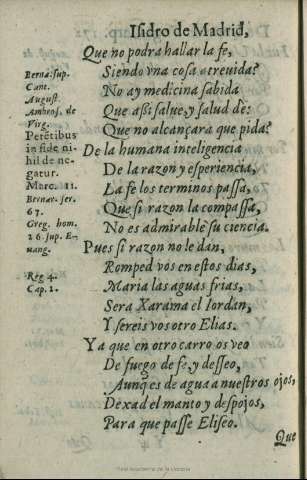 Isidro de Madrid,
Que no podra hallar la fe,
Siendo vna cosa atreuida?
No ay medicina sabida
Que assi salue, y salud dè:
Que no alcançara que pida?
De la humana inteligencia
De la razon y esperiencia,
La fe los terminos passa,
Que si razon la compassa,
No es admirable su ciencia.
Pues si razon no le dan,
Romped vos en estos dias,
Maria las aguas frias,
Sera Xarama el Iordan,
Y sereis vos otro Elias.
Ya que en otro carro os veo
De fuego de fe, y desseo,
Aunq̃ es de agua a nuestros ojos,
Dexad el manto y despojos,
Para que passe Eliseo.
Que
Berna: sup.
Cant.
August.
Ambros. de
Virg.
Petẽtibus
in fide ni-
hil de ne-
gatur.
Marc. 11.
Bernar. ser.
67.
Greg. hom.
26. sup. E-
uang.
Reg 4.
Cap. 2.